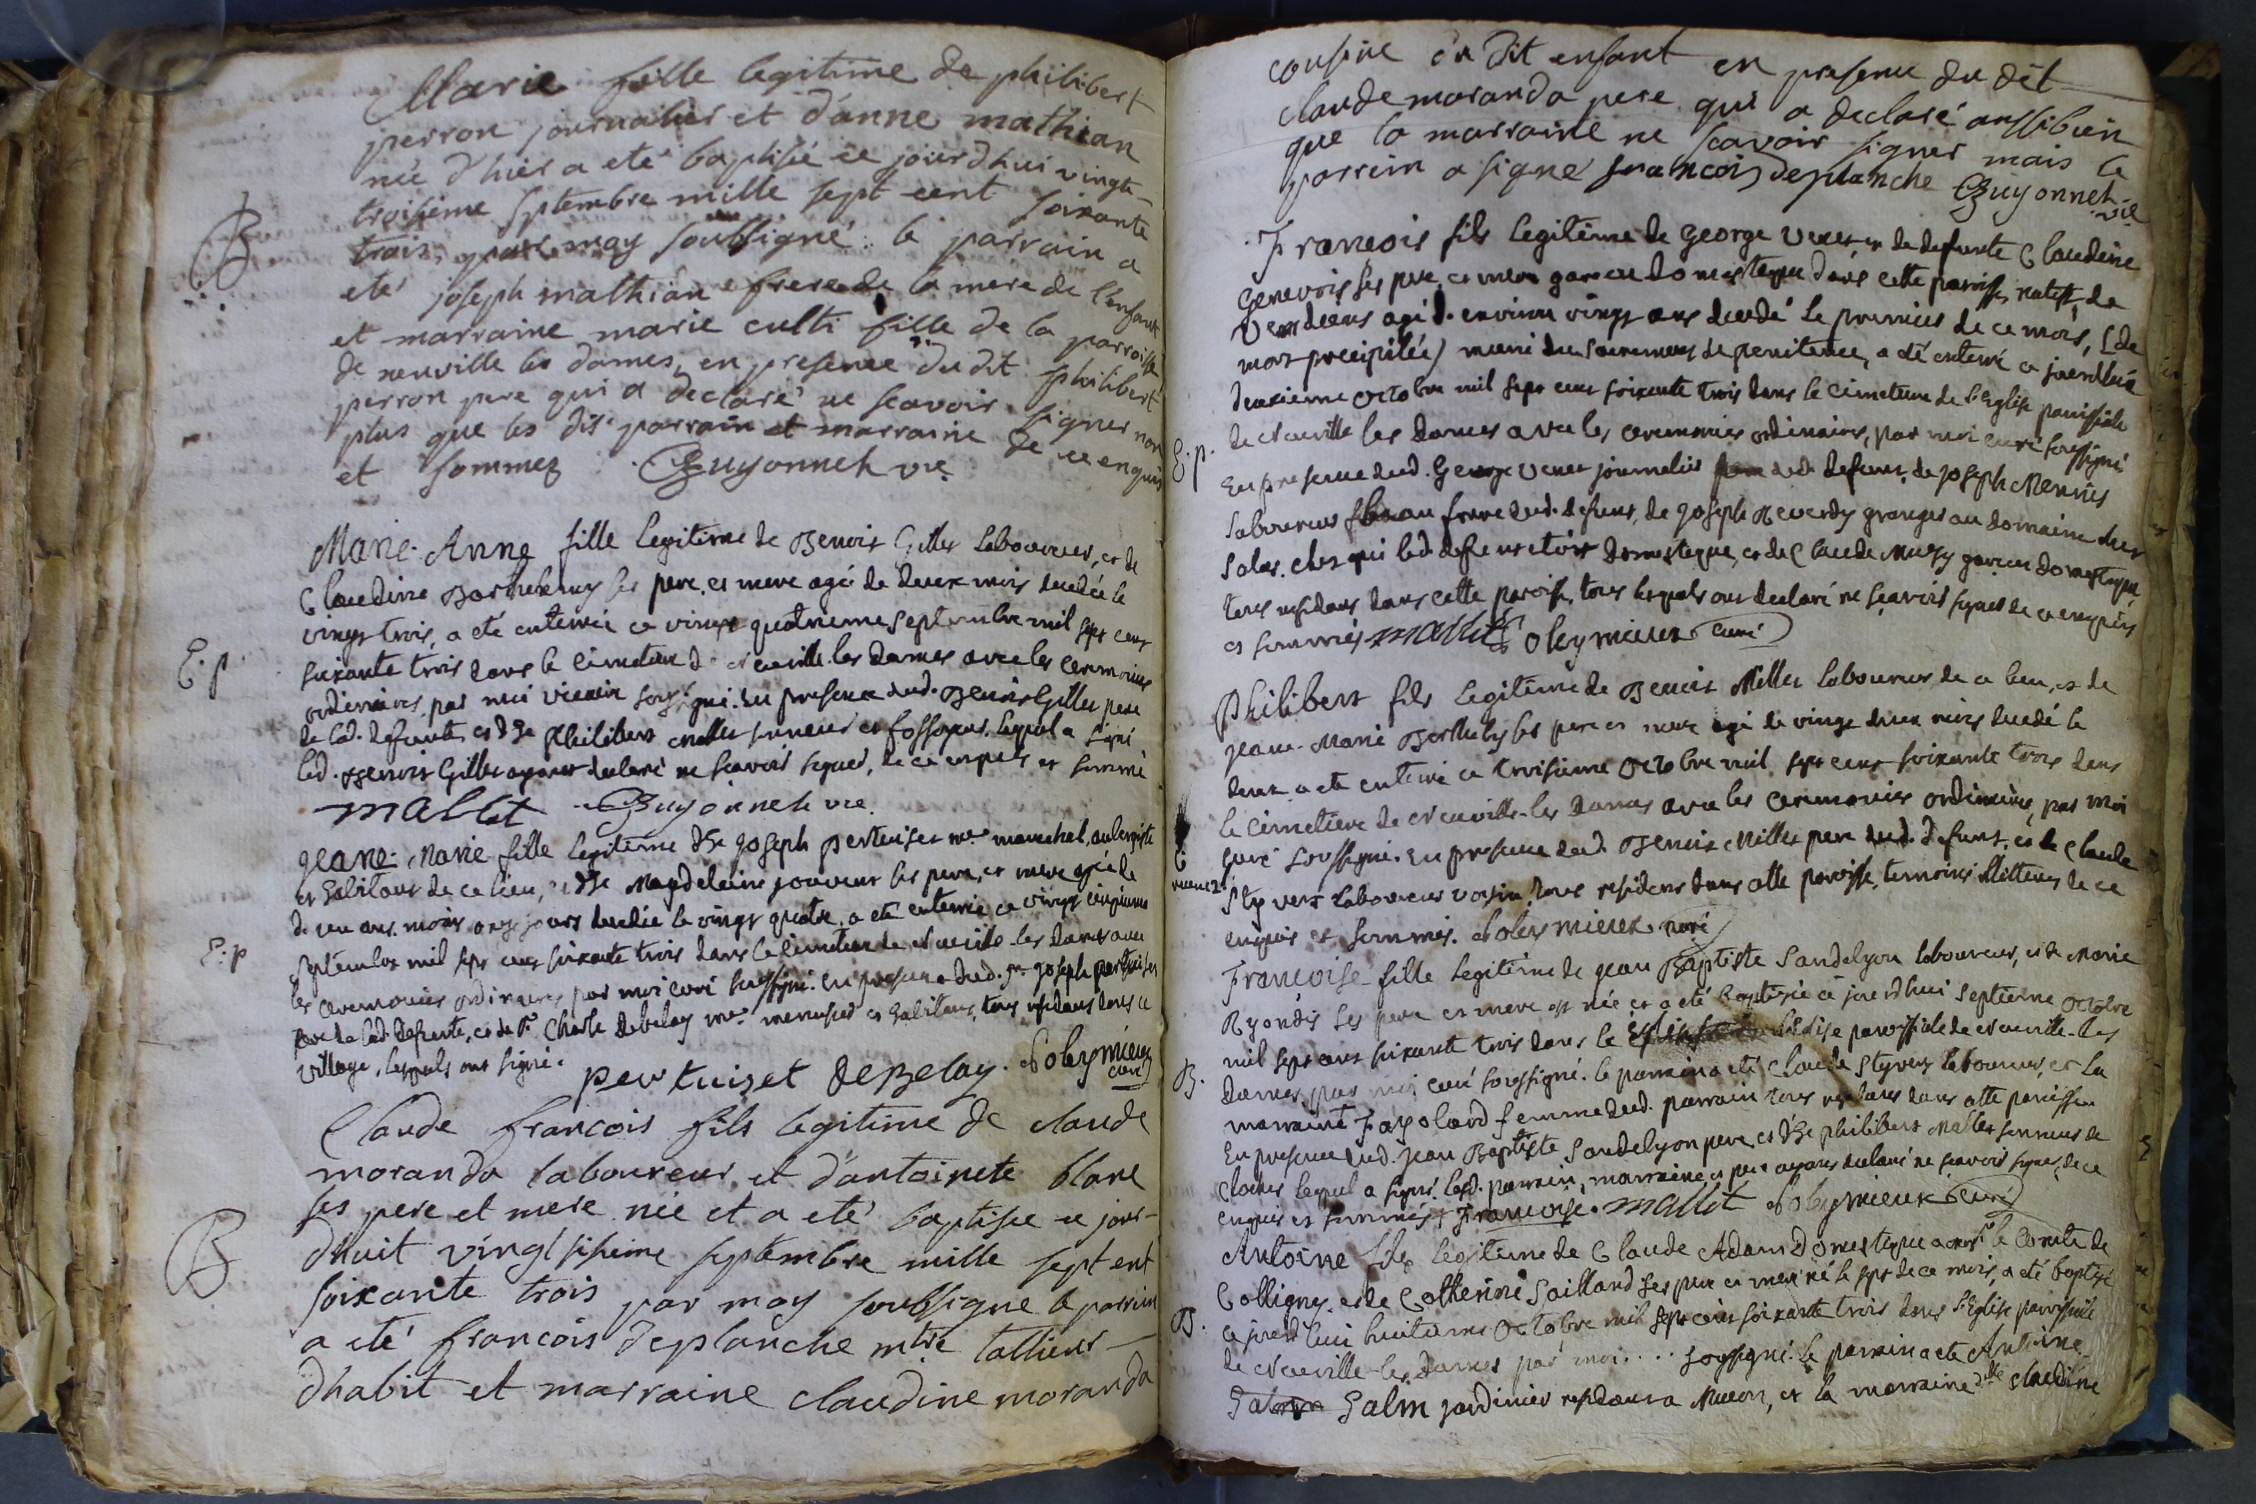 Marie fille legitime de philibert
perron journalier et d'anne mathian
née d'hier a eté baptisée ce jourdhui vingt-
troisieme septembre mille sept cent soixante
trois, par moy soussigné. le parrain a
B
eté joseph mathian frere de la mere de l'enfant
et marraine marie culti fille de la parroisse
de neuville les dames, en presence du dit philibert
perron pere qui a declaré ne scavoir signer non
plus que les dits parrain et marraine de ce enquis
et sommez Guyonnet vic
Marie-Anne fille legitime de Benoit Gillet Laboureur, et de
Claudine ses pere et mere agée de deux mois decedée le
vingt trois, a eté enterrée ce vingt quatrieme septembre mil sept cent
E. p.
soixante trois dans le cimetiere de Neuville les Dames avec les ceremonies
ordinaires, par moi vicaire soussigné. en presence dud. Benoit Gillet pere
de lad. defunte, et de Philibert Mallet sonneur et fossoyeur, lequel a signé
led. Benoit Gillet ayant declaré ne scavoir signer, de ce enquis et sommé
mallet Guyonnet vic
Jeane-Marie fille legitime de Joseph Pertuiset me marechal, aubergiste
et habitant de ce lieu, et de Magdeleine jouvent ses pere et mere agée de
de un ans moins onze jours decedée le vingt quatre, a eté enterrée ce vingt cinquieme
E. p
septembre mil sept cent soixante trois dans le cimetiere de Neuville les Dames avec
les ceremonies ordinaires par moi curé soussigné. en presence dud. Sr Joseph pertuiset
pere de lad. defunte, et de Sr Charle Debelay me menusier et habitant, tous residans dans ce
village, lesquels ont signé.
pertuiset deBelay. Dobymieux
curé
Claude francois fils legitime de claude
moranda laboureur et d'antoinete blanc
ses pere et mere née et a eté baptisée ce jour-
B
dhuit vingtsixieme septembre mille sept ent
soixante trois par moy soubsigne le parrain
a eté francois deplanche mtre tallieur
dhabit et marraine claudine moranda
cousine du dit enfant en presence du dit
claude moranda pere qui a declaré aussibien
que la marraine ne scavoir signer mais le
parrein a signé francois deplanche Guyonnet
vic
François fils legitime de George Venet et de defunte Claudine
Genevois ses pere et mere garcon domestique dans cette paroisse, natif de
agé d'environ vingt ans decedé le premier de ce mois, (de
mort precipitée) muni du Sacrement de penitence, a eté enterré ce jourdhui
deuxieme octobre mil sept cent soixante trois dans le cimetiere de l'Eglise paroissiale
de Neuville les Dames avec les ceremonies ordinaires, par moi curé soussigné
E. p.
en presence dud. George Venet journalier pere dud. defunt, de Joseph
laboureur frere dud. defunt, de Joseph Reverdy granger au domaine des
Sales, chez qui led. defunt etoit domestique, et de Claude garcon domestique
tous residans dans cette paroisse, tous lesquels ont declaré ne scavoir signer de ce enquis
et sommés mallet Dobymieux curé
Philibert fils legitime de Benoit Millet laboureur de ce lieu, et de
Jeane-Marie ses pere et mere agé de vingt deux mois decedé le
deux a eté enterré ce troisieme octobre mil sept cent soixante trois dans
le cimetiere de Neuville-les-Dames avec les ceremonies ordinaires, par moi
curé soussigné. en presence dud. Benoit Millet pere dud. defunt, et de Claude
Styvert laboureur voisin tous residans dans cette paroisse, temoins illitterés de ce
enquis et sommés. Dobymieux curé
Francoise fille legitime de Jean Baptiste Sandelyon laboureur, et de Marie
Ryondis ses pere et mere est née et a eté baptisée ce jourdhui septieme octobre
mil sept cent soixante trois dans l'Eglise paroissiale de Neuville-les
B.
Dames par moi curé soussigné. le parrain a eté Claude Styvert laboureur, et la
marraine Fayolard femme dud. parrain tous residans dans cette paroisse
En presence dud. Jean Baptiste Sandelyon pere, et de philibert Mallet sonneur de
cloches lequel a signé, lesd. parrain, marraine et pere ayans declaré ne scavoir signer, de ce
enquis et sommés Francoise. mallet Dobymieux curé
Antoine fils legitime de Claude Adam Domestique a monsr le Comte de
Colligny, et de Catherine Saillard ses pere et mere né le sept de ce mois, a eté baptisé
B.
ce jourdhui huitieme octobre mil sept cent soixante trois dans l'Eglise paroissiale
de Neuville-les-Dames par moi .... soussigné. le parrain a eté Antoine
Galm jardinier residant a Macon, et la marraine dlle claudine